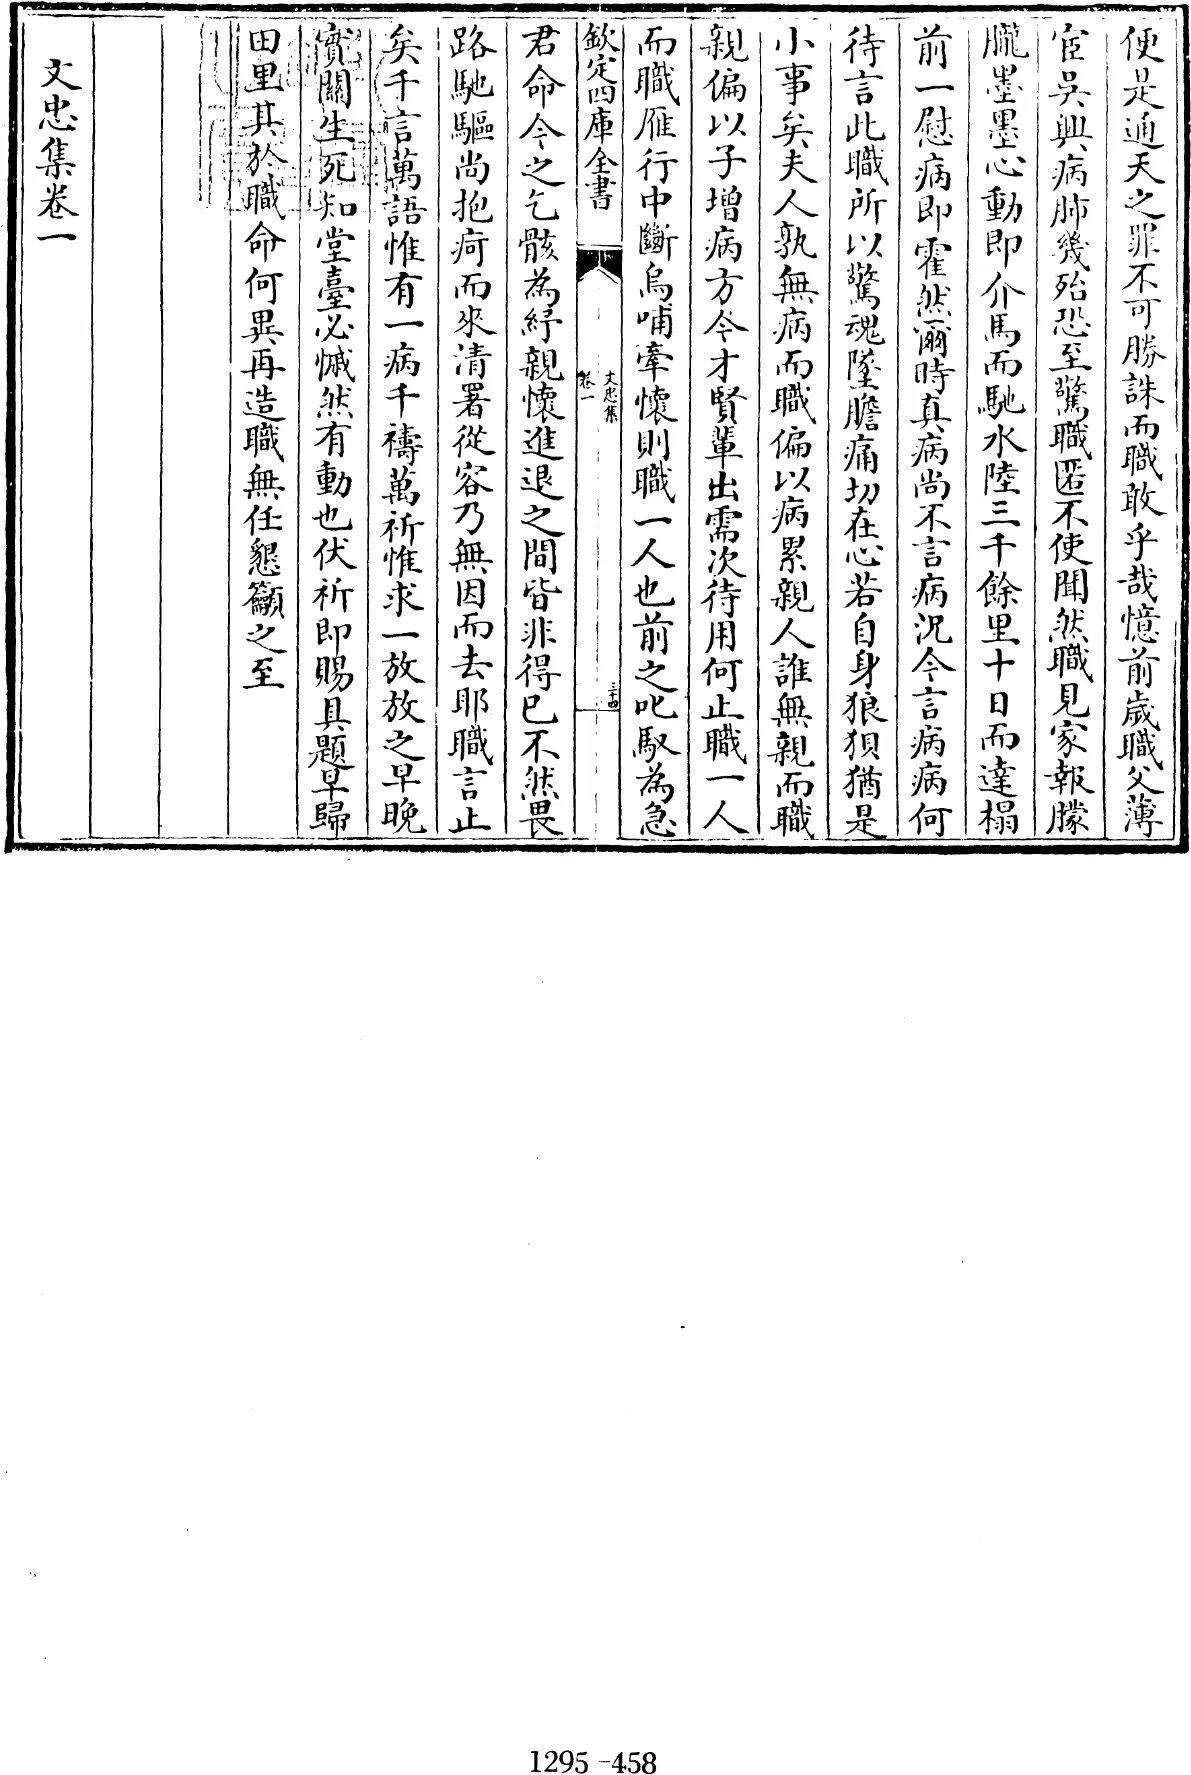 便是通天之罪不可勝誅而職敢乎哉憶前歲職父薄
宦吳興病肺幾殆恐至驚職匿不使聞然職見家報朦
朧墨墨心動即介馬而馳水陸三千餘里十日而達榻
前一慰病即霍然爾時真病尚不言病況今言病病何
待言此職所以驚魂墜膽痛切在心若自身狼狽猶是
小事矣夫人孰無病而職偏以病累親人誰無親而職
親偏以子增病方今才賢輩出需次待用何止職一人
而職雁行中斷烏哺牽懷則職一人也前之叱馭為急
欽定四庫全書
文忠集
卷一
三十四
君命今之乞骸為紓親懷進退之間皆非得已不然畏
路馳驅尚抱疴而來清署從容乃無因而去耶職言止
矣千言萬語惟有一病千禱萬祈惟求一放放之早晚
實關生死知堂臺必慽然有動也伏祈即賜具題早歸
田里其於職命何異再造職無任懇籲之至
文忠集卷一
1295-458